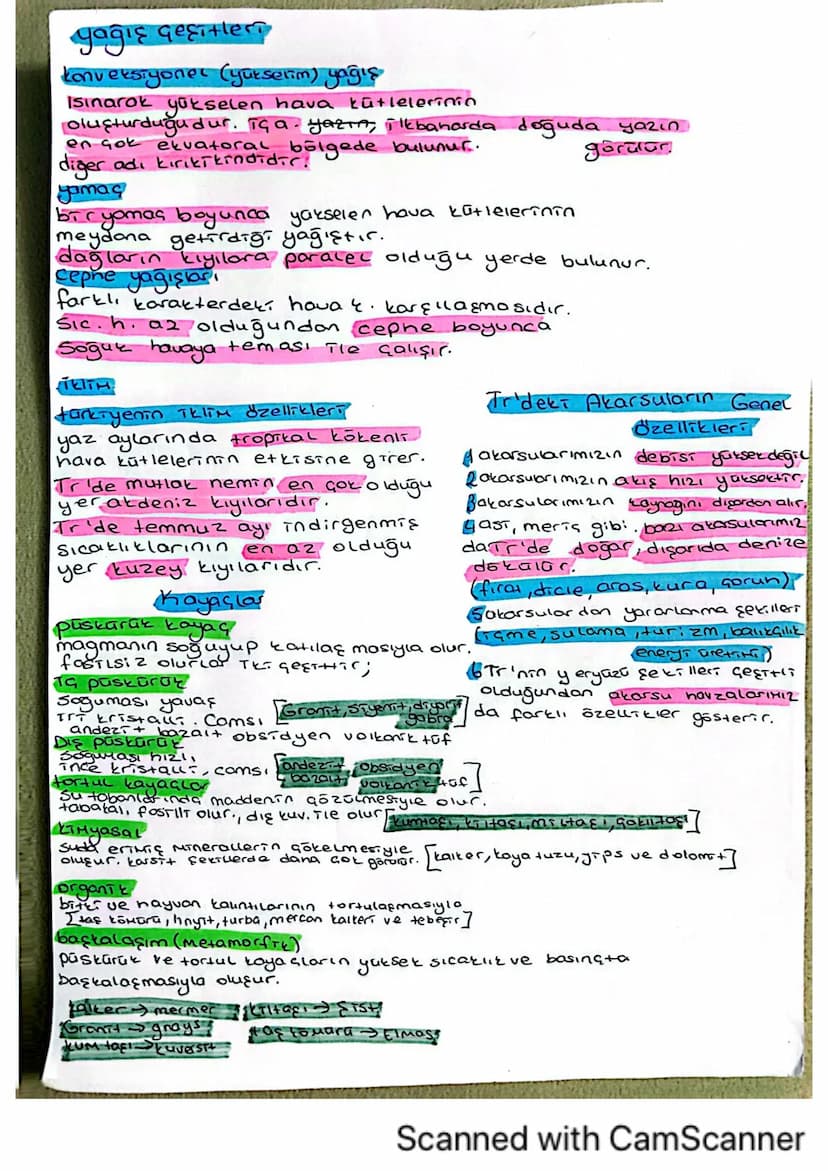 yağış çeşitleri
konveksiyonel (yükselim) yağış
ısınarak yükselen hava kütlelerinin
oluşturduğudur. iç a. yazın, ilkbaharda doğuda yazın
en çok ekvatoral bölgede bulunur. görülür.
diğer adı kırkikindidir!
yamaç
bir yamaç boyunca yükselen hava kütlelerinin
meydana getirdiği yağıştır.
dağların kıyılara paralel olduğu yerde bulunur.
cephe yağışları
farklı karakterdeki hava k. karşılaşmasıdır.
sıc. h. az olduğundan cephe boyunca
soğuk havaya teması ile çalışır.
iklim
türkiyenin iklim özellikleri
yaz aylarında tropikal kökenli
hava kütlelerinin etkisine girer.
Tr'de mutlak nemin en çok olduğu
yer akdeniz kıyılarıdır.
Tr'de temmuz ayı indirgenmiş
sıcaklıklarının en az olduğu
yer kuzey kıyılarıdır.
Tr'deki Akarsuların Genel
Özellikleri
1 akarsularımızın debisi yüksek değil
2 akarsularımızın akış hızı yüksektir.
3 akarsularımızın kaynağını dışardan alır.
4 asi, meriç gibi. bazı akarsularımız
da Tr'de doğar, dışarıda denize
dökülür.
(fırat, dicle, aras, kura, çoruh)
5 akarsulardan yararlanma şekilleri
(içme, sulama, turizm, balıkçılık
enerji üretimi)
6 Tr'nin yeryüzü şekilleri çeşitli
olduğundan akarsu havzalarımız
da farklı özellikler gösterir.
Kayaçlar
püskürük kayaç
magmanın soğuyup katılaşmasıyla olur.
fosilsiz olurlar iki çeşittir;
iç püskürük
soğuması yavaş
iri kristalli. camsı [Granit, siyenit, diyorit
gabro]
andezit bazalt obsidyen volkanik tüf
Dış püskürük
soğuması hızlı,
ince kristalli, camsı [andezit, obsidyen
bazalt, volkanik tüf]
tortul kayaçlar
su tabanlarında maddenin çözülmesiyle olur.
tabakalı, fosilli olur, dış kuv. ile olur [kumtaşı, kiltaşı, miltaşı, çakıltaşı]
kimyasal
suda erimiş minerallerin çökelmesiyle
oluşur. karstik şekillerde daha çok görülür. [kalker, kaya tuzu, jips ve dolomit]
organik
bitki ve hayvan kalıntılarının tortulaşmasıyla
[taş kömürü, linyit, turba, mercan kalkeri ve tebeşir]
başkalaşım (metamorfik)
püskürük ve tortul kayaçların yüksek sıcaklık ve basınçta
başkalaşmasıyla oluşur.
kalker → mermer kiltaşı → şist
Granit → gnays taş kömürü → Elmas
kum taşı → kuvarsit
Scanned with CamScanner